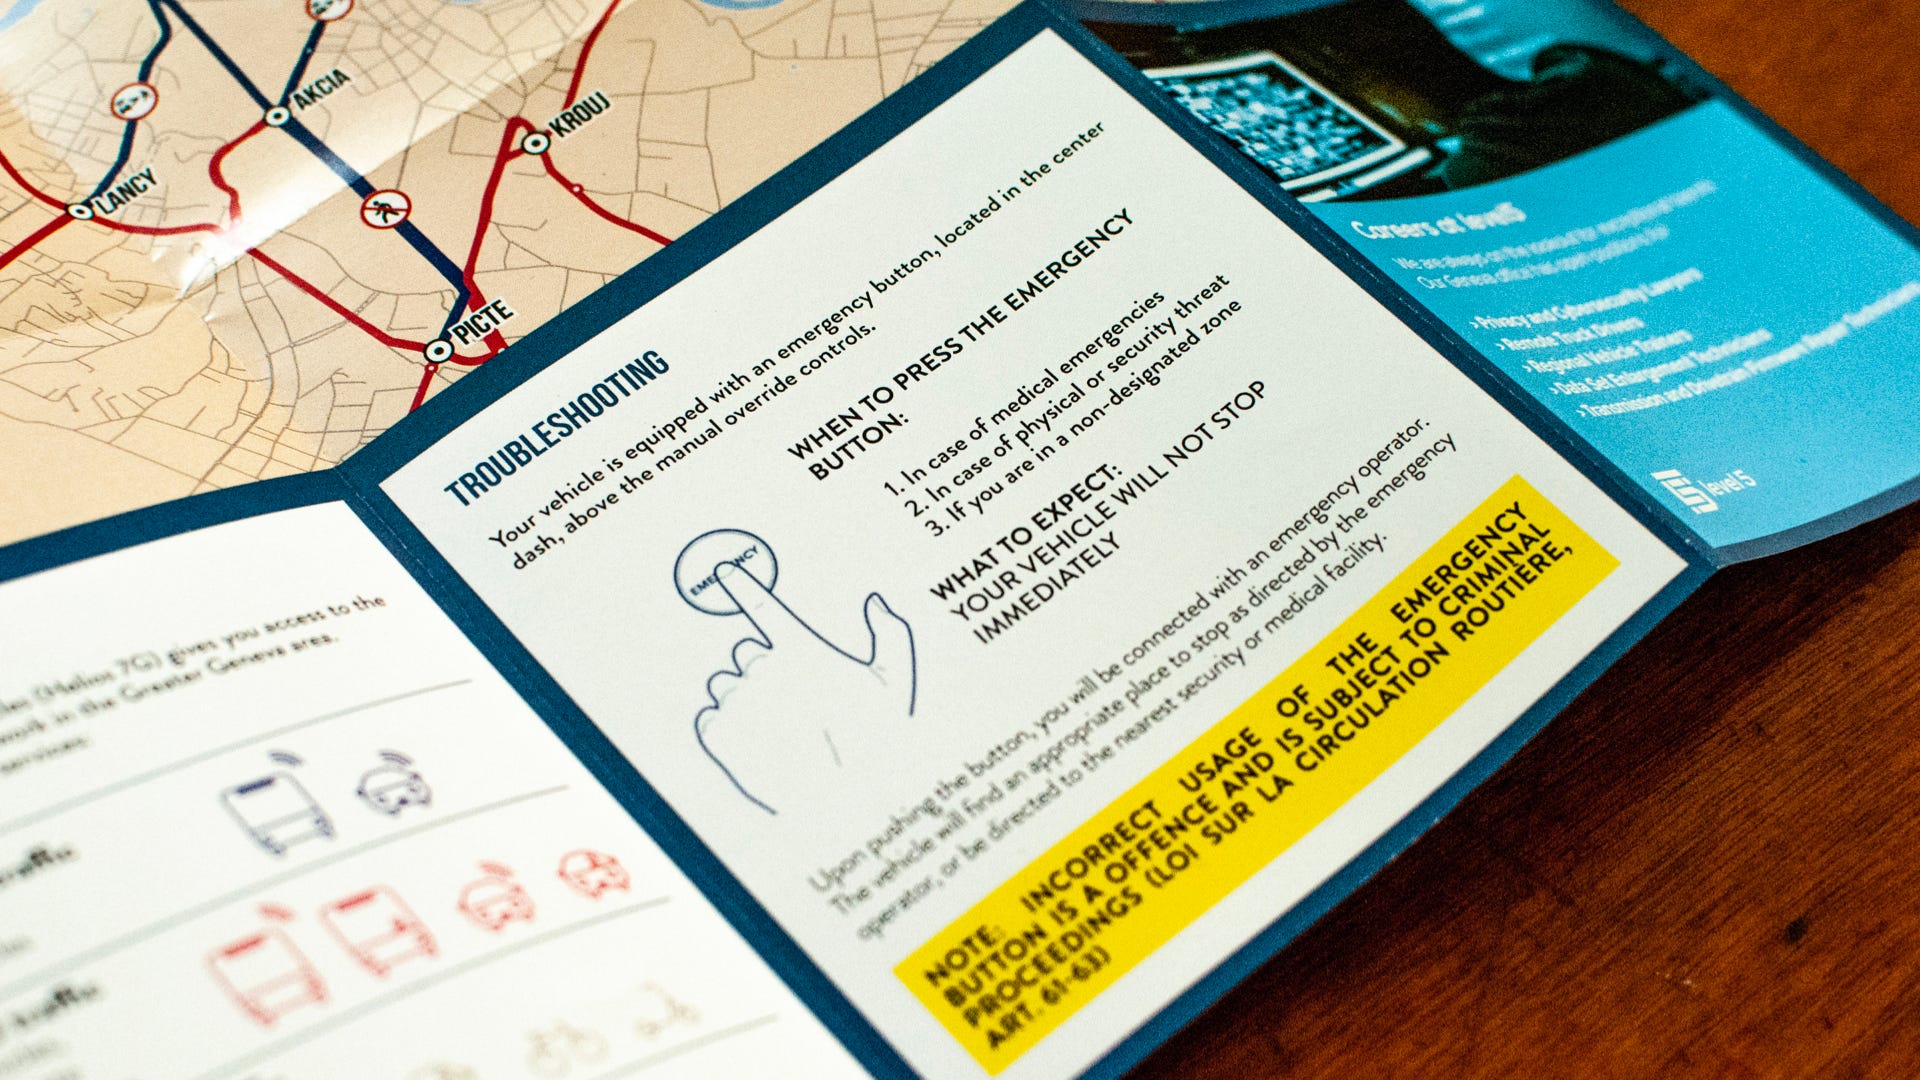 AKCIA
KROUJ
LANCY
PICTE
TROUBLESHOOTING
Your vehicle is equipped with an emergency button, located in the center
dash, above the manual override controls.
WHEN TO PRESS THE EMERGENCY
BUTTON:
1. In case of medical emergencies
2. In case of physical or security threat
3. If you are in a non-designated zone
EMERGENCY
WHAT TO EXPECT:
YOUR VEHICLE WILL NOT STOP
IMMEDIATELY
Upon pushing the button, you will be connected with an emergency operator.
The vehicle will find an appropriate place to stop as directed by the emergency
operator, or be directed to the nearest security or medical facility.
NOTE: INCORRECT USAGE OF THE EMERGENCY
BUTTON IS A OFFENCE AND IS SUBJECT TO CRIMINAL
PROCEEDINGS (LOI SUR LA CIRCULATION ROUTIÈRE,
ART. 61-63)
(Helios 7G) gives you access to the
work in the Greater Geneva area.
services
traffic
traffic
Careers at level5
We are always on the lookout for exceptional talent
Our Geneva office has open positions for
› Privacy and Cybersecurity Lawyers
› Remote Truck Drivers
› Regional Vehicle Trainers
› Data Set Enlargement Technicians
› Transmission and Drivetrain Firmware Repair
level5